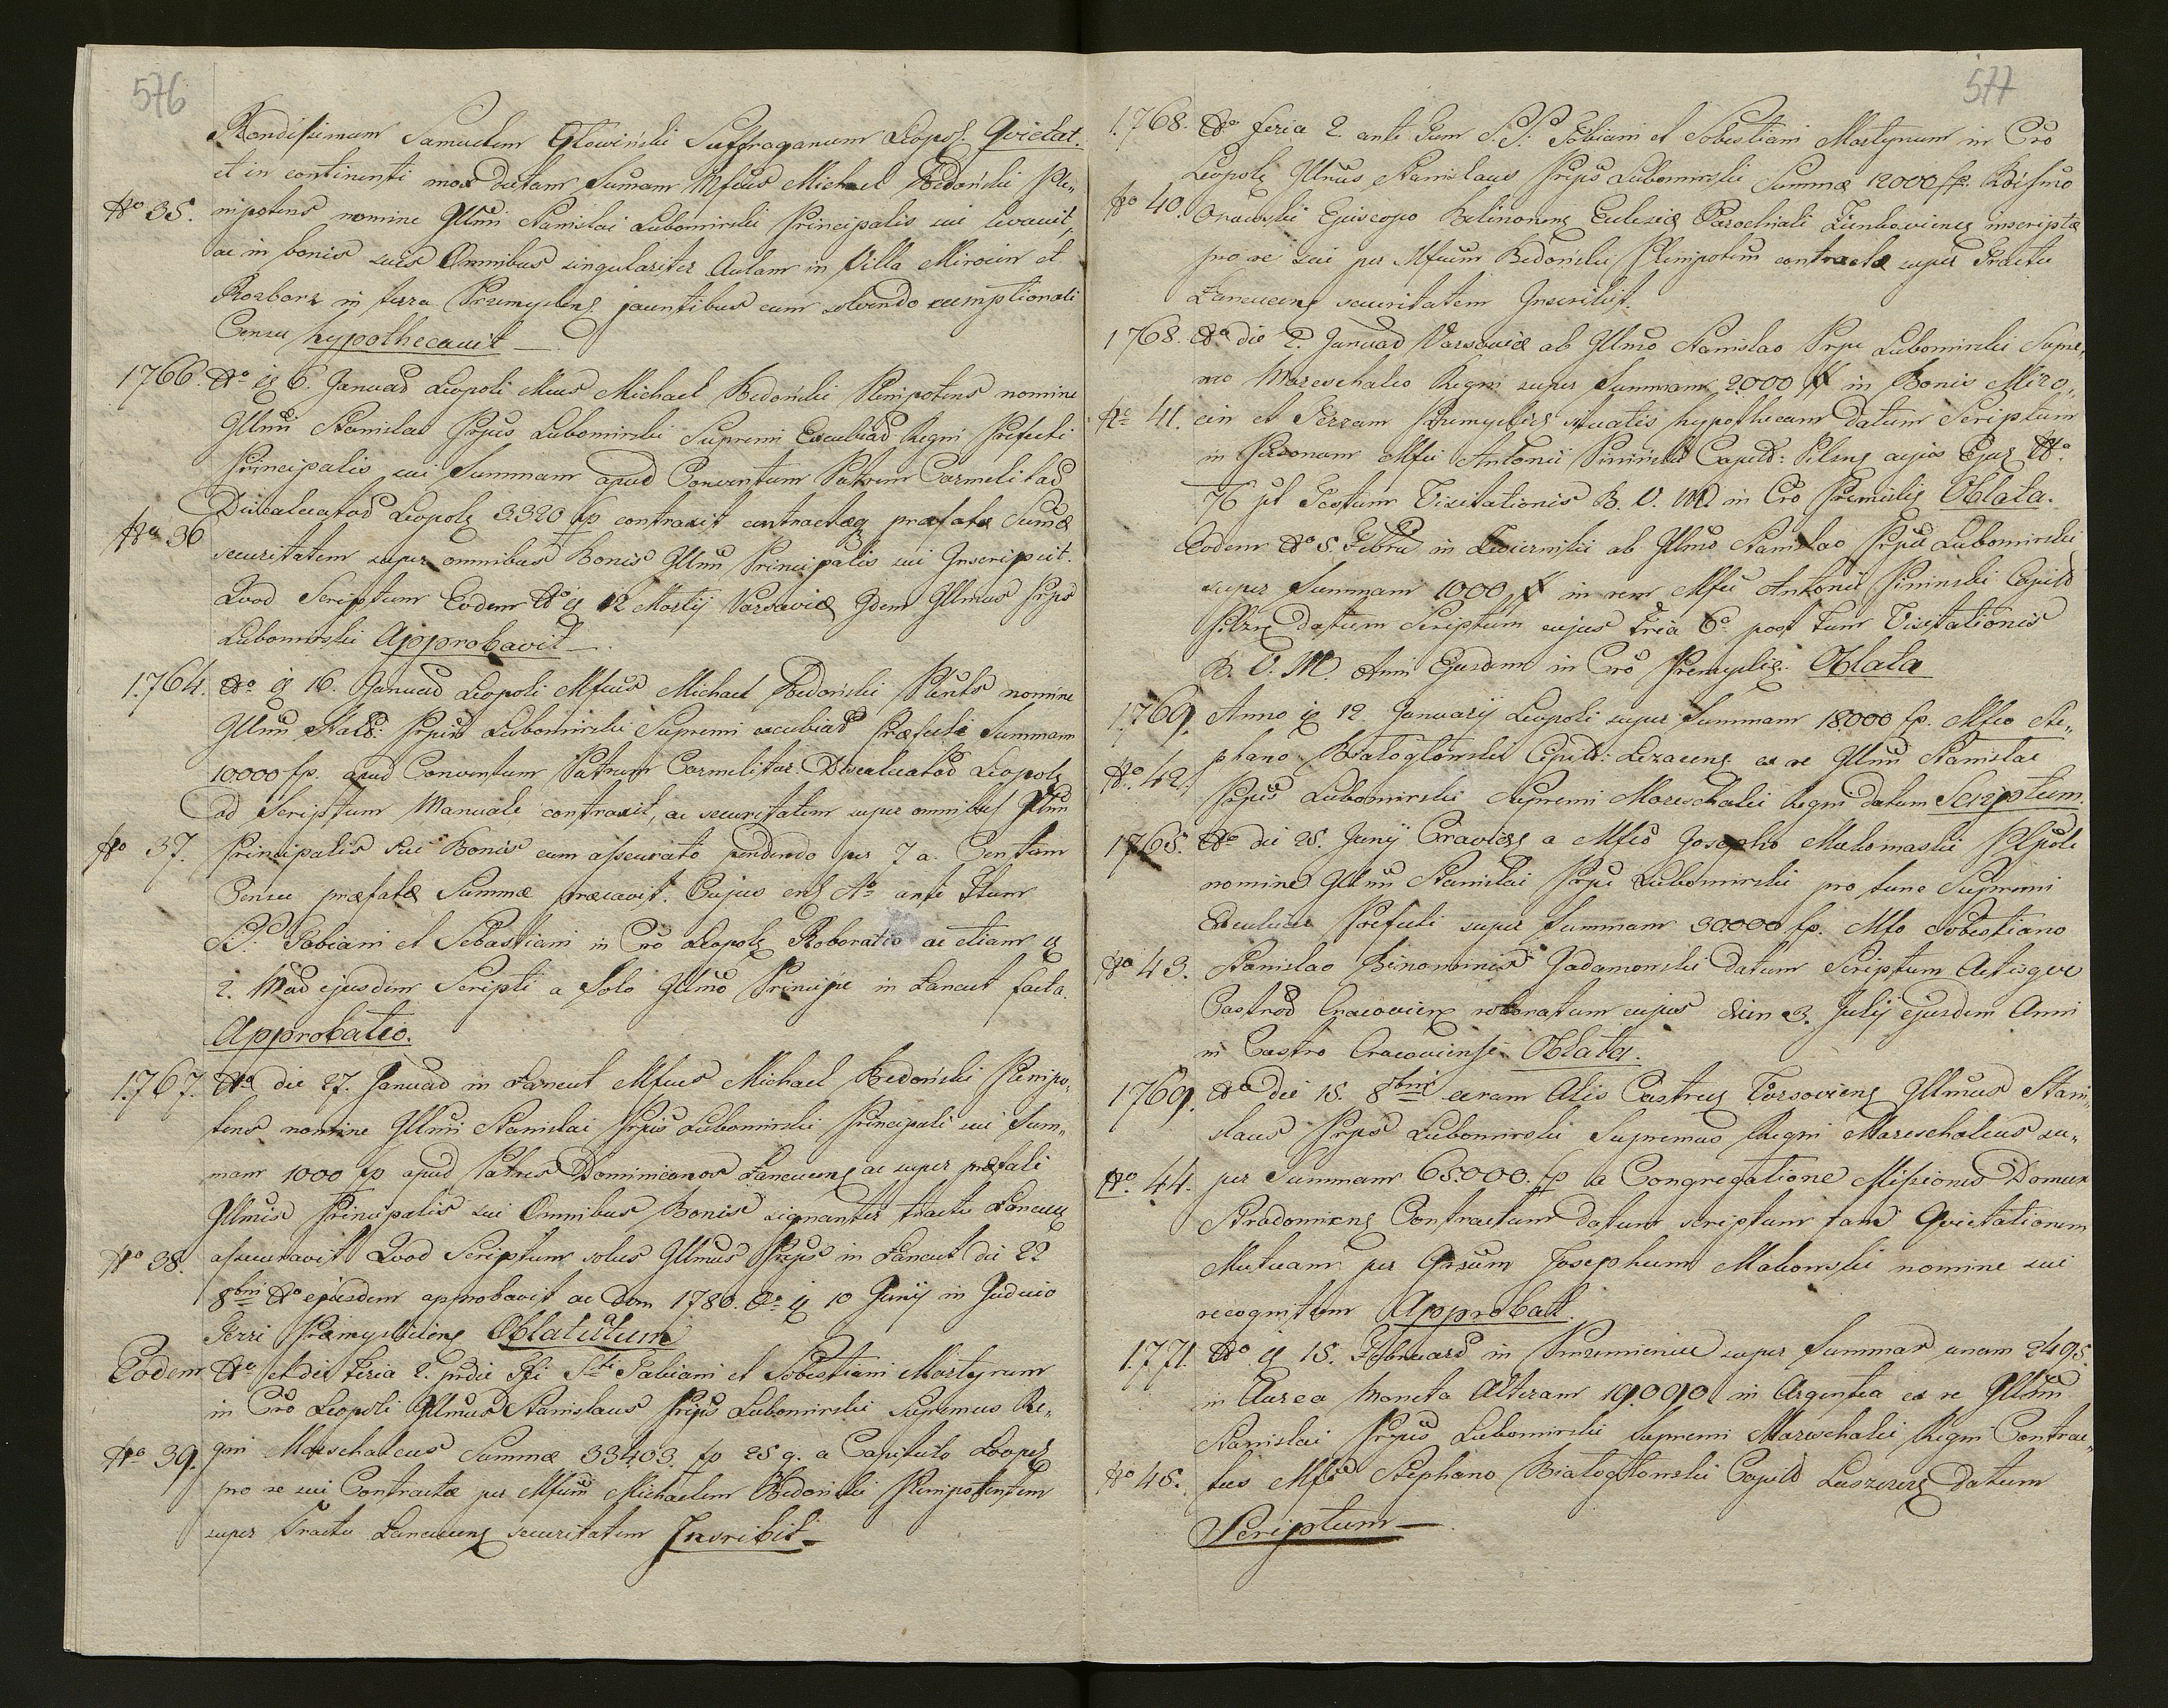 576
Rendissimum Samuelem Głowiński Suffraganum Leopol. Quietat.
et in continenti mox dictam Sumam Mfcus Michael Bedoński Ple„
No 35. nipotens nomine Illmi Stanislai Lubomirski Principalis sui levavit,
ac in bonis suis Omnibus singulariter Aulam in Villa Mirocin et
Rozborz in terra Przemysleng. jacentibus cum solvendo reemptionali
Censu hypothecavit —
1766. Ao ig 6. Januad Leopoli Mcus Michael Bedoński Plenipotens nomine
Illmi Stanislai Prpis Lubomirski Supremi Excubiad Regni Prefecti
Principalis sui Summam apud Conventum Patrum Carmelitad
Discalceatod Leopolg 3320 fp contraxit contractæq præfatæ Sumæ
No 36 securitatem super omnibus Bonis Illmi Principalis sui Inscripsit.
Quod Scriptum Eodem Ao ig 12 Martij Varsaviæ Idem Illmus Prps
Lubomirski Approbavit —.
1764. Ao ig 16. Januad Leopoli Mfcus Michael Bedoński Plents nomine
Illmi Stald: Prpis Lubomirski Supremi excubiad Præfecti Summam
10000 fp. apud Conventum Patrum Carmelitar: Discalceatod Leopolg
ad Scriptum Manuale contraxit, ac securitatem super omnibus Illmi
No 37. Principalis sui Bonis cum assecurato pendendo per 7 a. Centum
Censu præfatæ Summæ præcavit. Cujus Ao ante Ftum
SS: Fabiani et Sebastiani in Cro Leopolg Roboratio ac etiam ig
2. Mad ejusdem Scripti a Solo Illmo Principe in Łancut facta.
Approbatio.
1767. Ao die 27. Januad in Łancut Mfcus Michael Bedoński Plenipo„
tens nomine Illmi Stanislai Prpis Lubomirski Principali sui Sum„
mam 1000 fp apud Patres Dominicanos Łancuceng ac super præfati
Illmis Principalis sui Omnibus Bonis signanter tractu Łancucg
No 38. assecuravit Quod Scriptum solus Illmus Prps in Łancut die 22
8bris Ao ejusdem approbavit ac Dom 1780. Ao ig 10 Junij in Judicio
Terri Premysliens Oblatutum
Eodem Ao et die Feria 2. pridie Ffi Sti Fabiani et Sebestiani Martyrum
in Cro Leopoli Illmus Stanislaus Prps Lubomirski Supremus Re„
No 39. gni Mareschalcus Summæ 33403. fp 25 g. a Capitulo Leopolg
pro se sui Contractæ per Mfcum Michaelem Bedoński Plenipotentem
super Tractu Łancuceng securitatem Inscribit —
577
1768. Ao feria 2. ante Ftum S.S: Fabiani et Sebestiani Martyrum in Cro
Leopolg Illmus Stanislaus Prps Lubomirski Summæ 12000 fp. Rdissmo
No 40. Orawski Episcopo Belinoneng Eulesiæ Parochiali inscriptæ
pro re sui per Mfcum Bedoński Plenipotem contractæ super Tractu
Łancuceng securitatem Inscribit.
1768. Ao die 2. Januad Varsaviæ ab Illmo Stanislao Prpe Lubomirski Supre„
mo Mareschalco Regni super Summam 2000 # in Bonis Miro„
No 41. cin et Terram Premysliens situatis hypothecam datum Scriptum
in Personam Mfci Antonii Pinińskii Capitd: Pilzng cujus Ejus Ao.
76 pt Festum Visitationis B. V. M. in Cro Premislig Oblata.
Eodem Ao 5. Febru in ab Illmo Stanislao Prpe Lubomirski
super Summam 1000 # in rem Mfci Antonii Pininski Capitd
Pilzng datum Scriptum cujus Fria 6a post Ftum Visitationis
B. V. M. Anni Ejusdem in Cro Premyslig. Oblata
1769. Anno ig 12. Januarij Leopoli super Summam 18000 fp. Mfco Ste„
No. 42. phano Białogłowski Capitd: Lezaceng ex re Illmi Stanislai
Prpis Lubomirski Supremi Mareschalci Regni datum Scriptum.
1765. Ao die 25. Junij Craviæg a Mfco Josepho Makomaski Plpote
nomine Illmi Stanislai Prpi Lubomirski pro tunc Supremi
Excubiar Prefecti super Summam 30000 fp. Mfo Sobestiano
No 43. Stanislao Binominis Jadamowski datum Scriptum Actisque
Castrod Cracoviens roboratum cujus diem 3. Julij ejusdem Anni
in Castro Cracoviensi Oblata.
1769. Ao die 15. 8bris coram Atis Castreng Varsovieng Illmus Stani„
slaus Prps Lubomirski Supremus Regni Mareschalcus su„
No. 44. per Summam 65000. fp a Congregatione Missionis Domus
Stradomieng Contractam datum scriptum tam Quietationem
Mutuam per Grsum Josephum Makowski nomine sui
recognitam Approbat.
1771. Ao ig 15. Februard in super Summas unam 2495.
in Aurea Moneta Alteram 19.090 in Argentea ex re Illmi
Stanislai Prpis Lubomirski Supremi Mareschalci Regni Contrac„
No 45. tas Mfco Stephano Białogłowski Capitd datum
Scriptum —